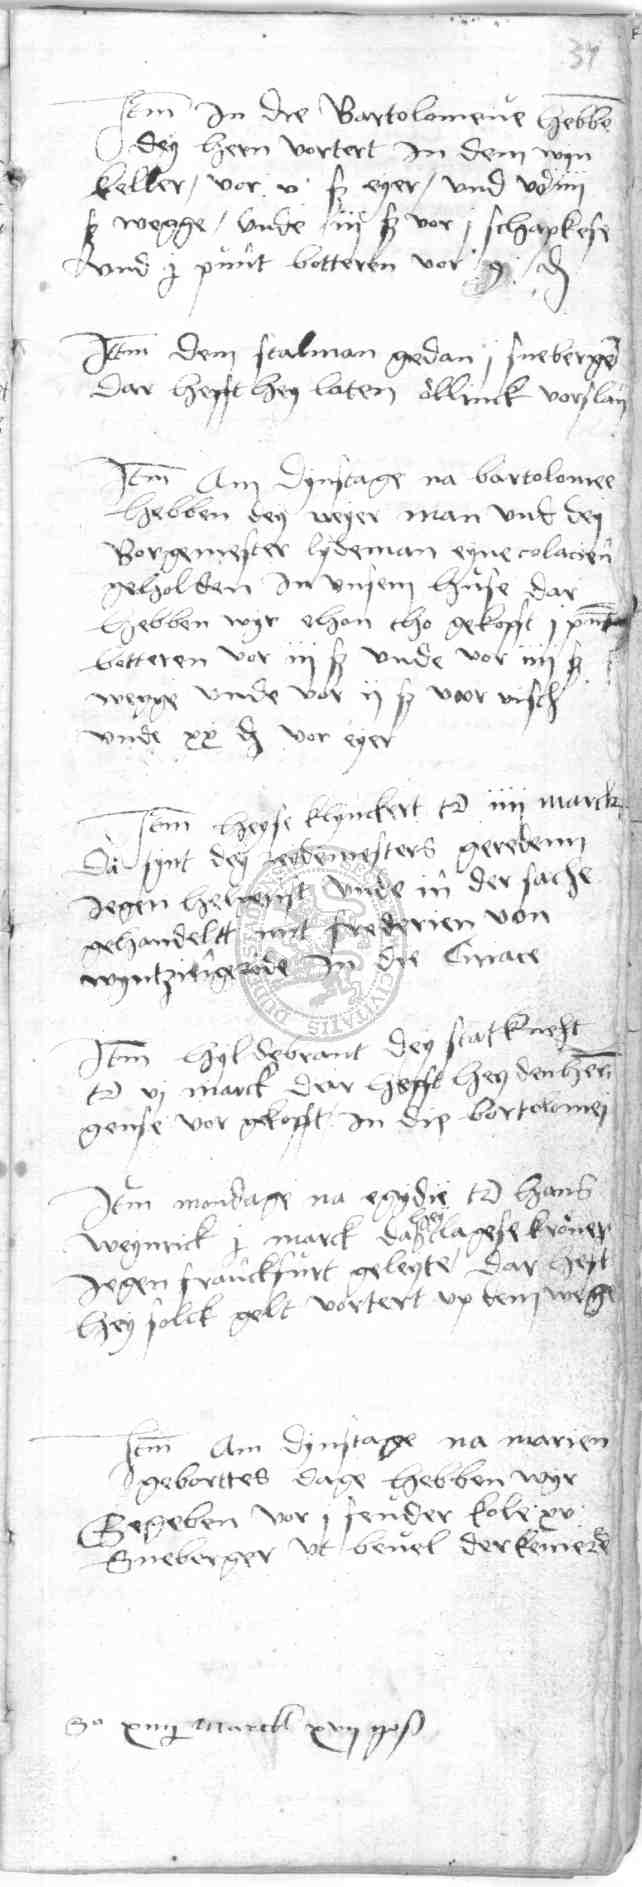 34
Itm In die Bartolomeue hebbe
dey hern vortert In dem wyn
keller / vor v ß eyer / vnd vor iiii
ß wegge / vnde iii ß vor j schapkese
vnd j punt botteren vor 9 ₰
Itm dem stalman gedan j sneberger
dar hefft hey laten öllinck vorslan
Itm Am dynstage na bartolomee
hebben dey weyer man vnd dey
Borgemester lydeman eyne colacien
geholden In vnsem huse dar
hebben wyr ehon tho gekofft j punt
botteren vor iij ß vnde vor iiij ß
wegge vnde vor ij ß vor visch
vnde xx ₰ vor eyer
Itm heyse klynckert tD iiij marck
Da synt dey redemesters geredenn
Jegen helvenst vnde in der sache
gehandeltt mit frederien von
wyntzingerode In die Ciriace
Itm hyldebrant dey statknecht
tD vj marck dar hefft hey den hern
gense vor gekofft In die bortolomej
Itm mondage na egydie tD hans
weynrick j marck da hey clagese kröner
Jegen franckfurt geleyte dar heft
hey solck gelt vortert vp dem wege
Itm Am dynstage na marien
geborttes dage hebben wyr
Gegeben vor j feuder kole xv
Sneberger vt beuel der kemerer
Sa xiiij marck xvij gos
DUDERSTADT CIVITATIS